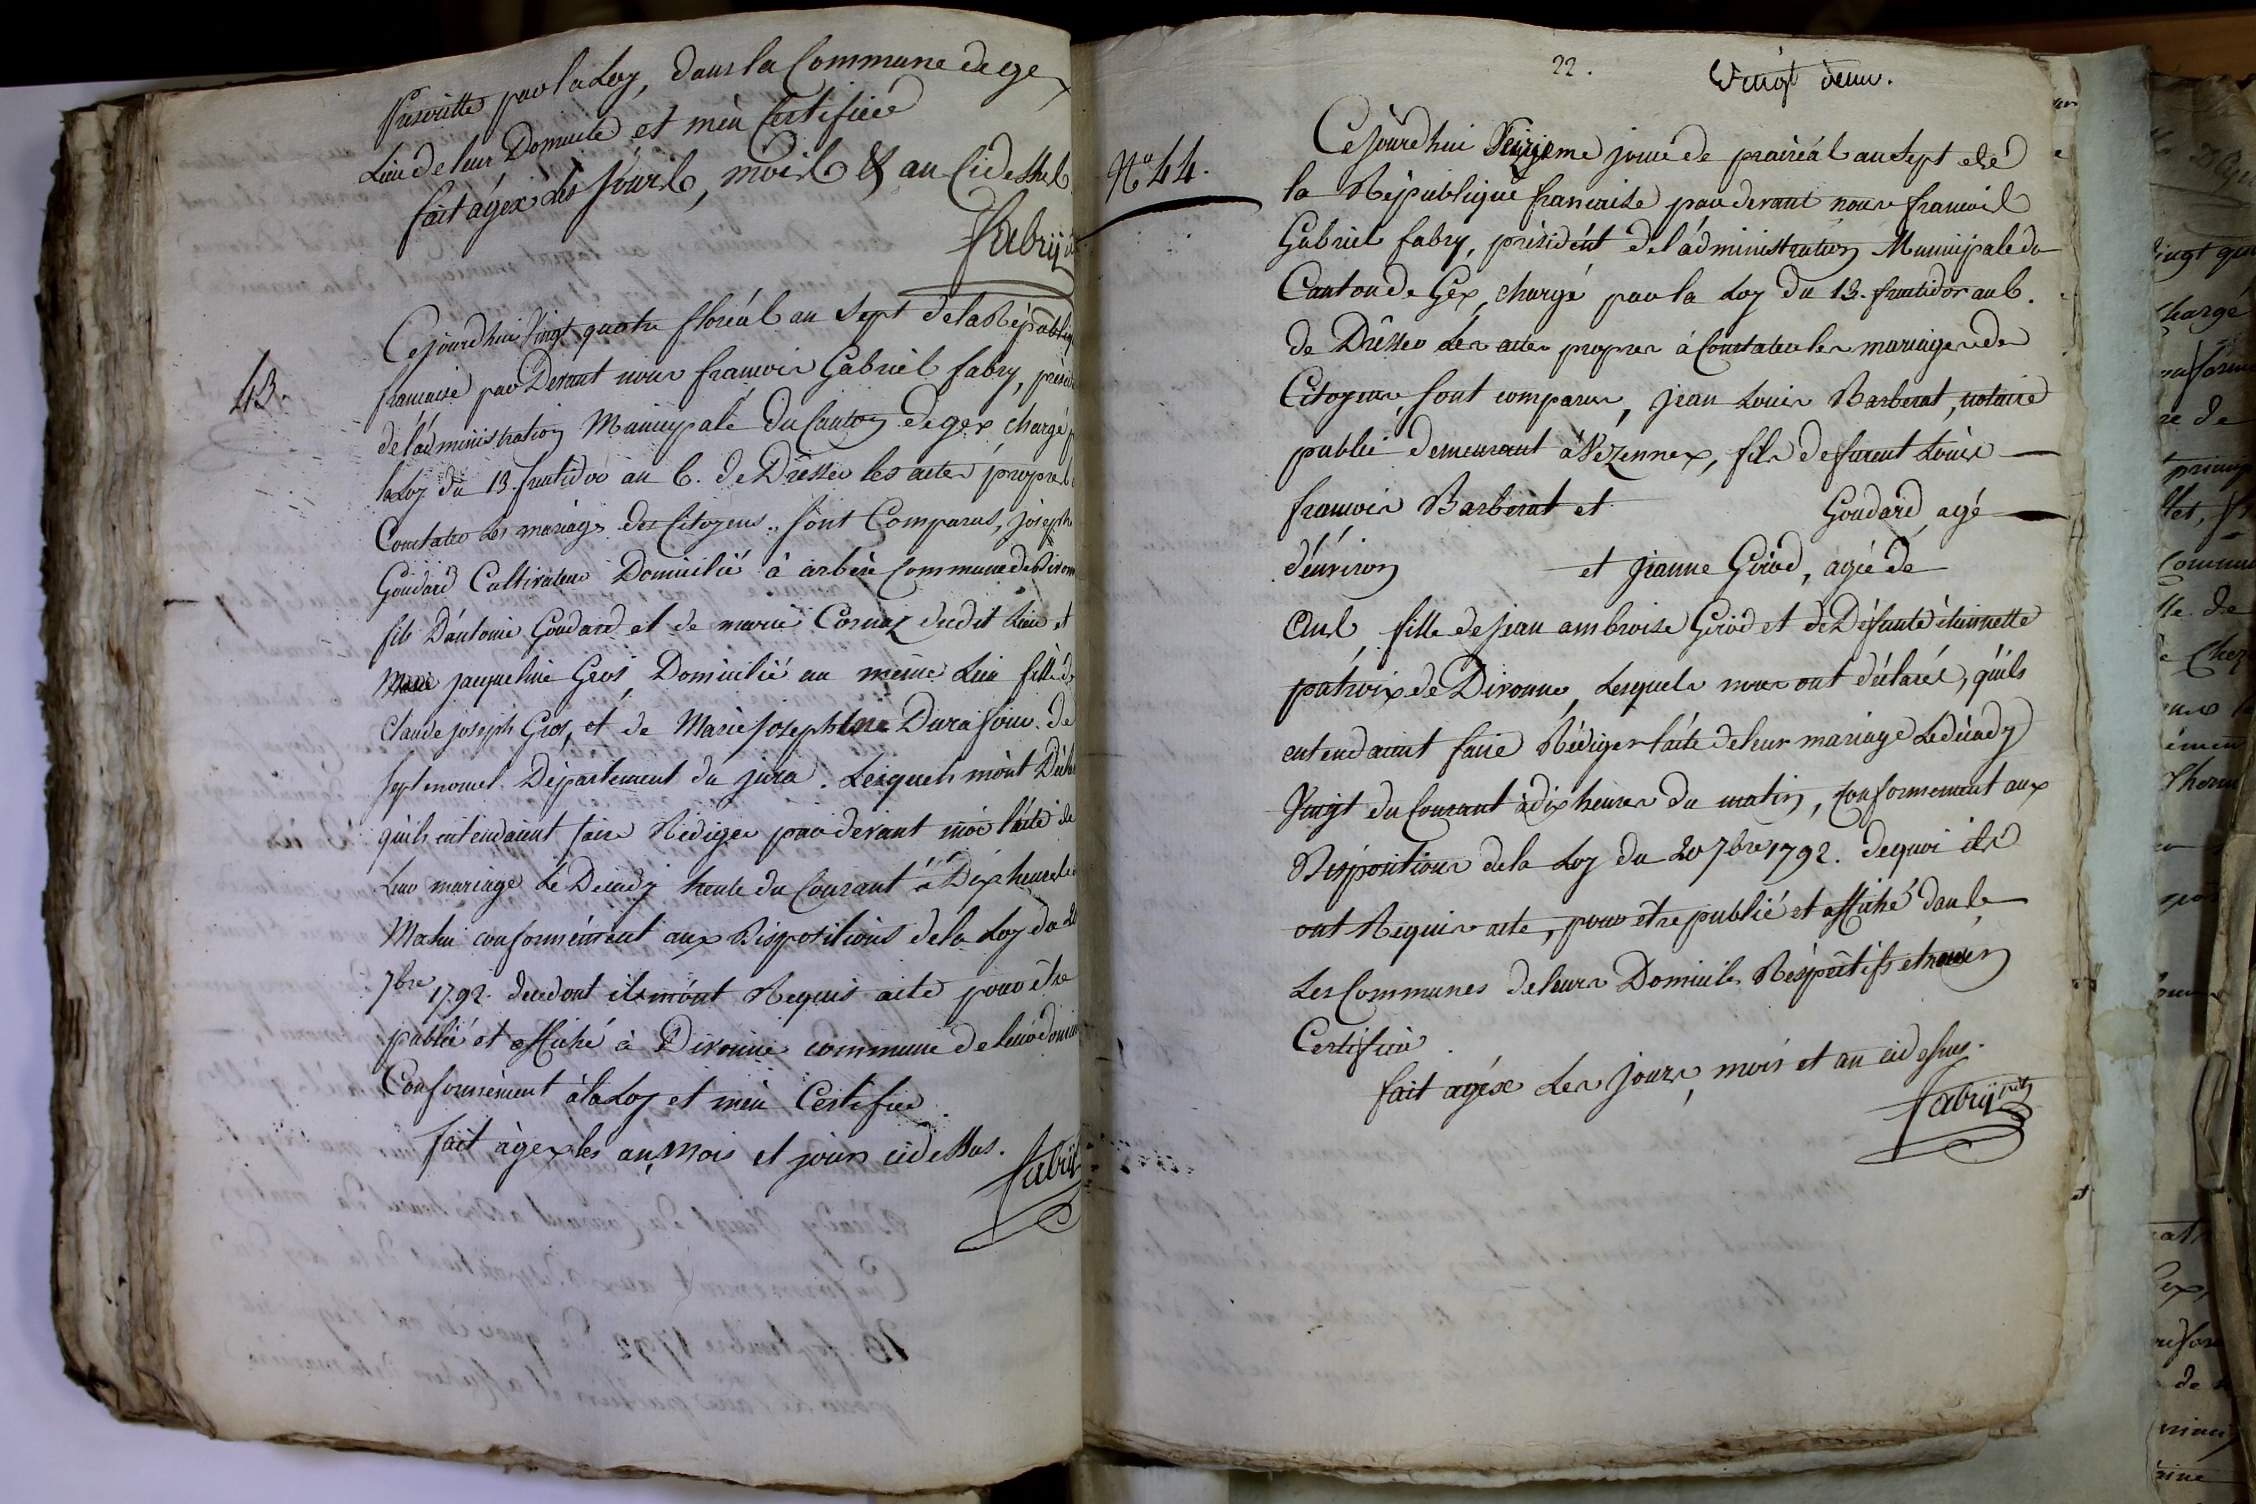 Prescritte par la Loy, dans la Commune de gex
Lieu de leur Domicile et m'en Certifier
fait à gex Les Jours, mois & an Cidessus
Fabry
43.
Cejourdhui Vingt quatre floréal an Sept de la Républiq
francaise par Devant nous francois Gabriel fabry, prési
de l'administration Municipale du Canton de gex chargé p
la Loy du 13. fructidor an 6. de Dresser les actes propres
Constater les mariages des Citoyens. Sont Comparus, joseph
Goudard Cultivateur Domicilié à arbère Commune de Divonn
fils D'antoine Goudard et de marie Cornaz dudit Lieu et
jacqueline Gros, Domicilié au même Lieu fille de
Claude joseph Gros, et de Marie josephine Durafour de
Septmoncel Département du jura. Lesquels m'ont Décla
qu'ils entendaient faire Rédiger par devant moi l'acte de
Leur mariage Le Decady trente du Courant à Dix heures de
Matin conformément aux Dispositions de la Loy du 20
7bre 1792. de ce dont ils m'ont Requis acte pour être
publié et affiché à Divonne commune de leur domici
Conformément à la Loy et m'en Certifier.
fait à gex les an, Mois et jour cidessus.
Fabry
22. Vingt deux.
N° 44.
Cejourdhui Seizieme jour de prairéal an Sept de
la République francaise par devant nous francois
Gabriel fabry, président de l'administration Municipale du
Canton de Gex, chargé par la Loy du 13. fructidor an 6.
de Dresser Les actes propres à Constater les mariages des
Citoyens, Sont comparus, jean Louis Barberat, notaire
public demeurant à Vézennex, fils de furent Louis
francois Barberat et Goudard, agé
d'environ et jeanne Girod, agée de
ans, fille de jean ambroise Girod et de Défunte étiennette
patroix de Divonne, Lesquels nous ont déclarés, qu'ils
entendaient faire Rédiger l'acte de leur mariage Le décady
Vingt du Courant à dix heures du matin, conformement aux
Dispositions de la Loy du 20 7bre 1792. dequoi ils
ont Requis acte, pour être publié et affiché dans le
Les Communes de leurs Domicils Réspectifs et
Certifier.
fait à gex Les jours, mois et an cidessus.
Fabry